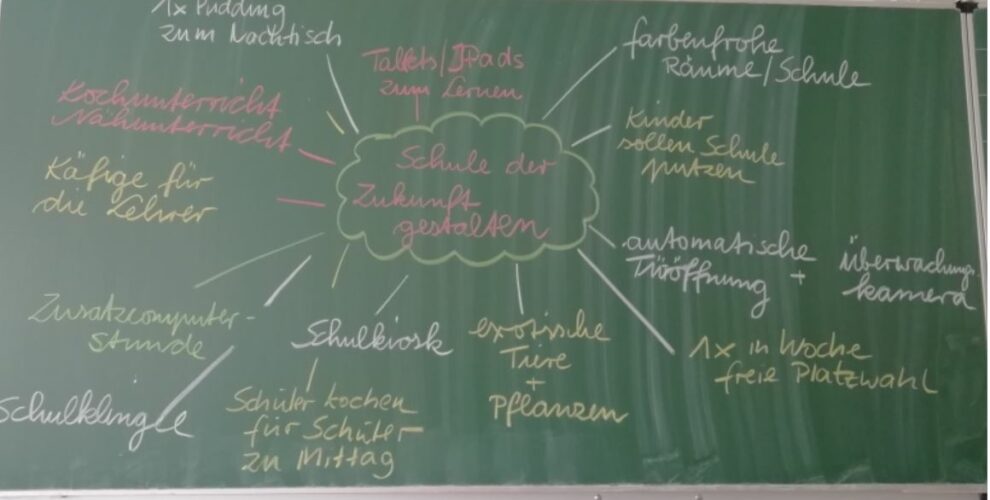 1x Pudding
zum Nachtisch
Tablets/IPads
zum Lernen
farbenfrohe
Räume/Schule
Kochunterricht
Nähunterricht
Kinder
sollen Schule
putzen
Schule der
Zukunft
gestalten
Käfige für
die Lehrer
automatische
Türöffnung +
Überwachungs-
kamera
Zusatzcomputer-
stunde
Schulkiosk
exotische
Tiere
+
Pflanzen
1x in Woche
freie Platzwahl
Schulklingle
Schüler kochen
für Schüler
zu Mittag